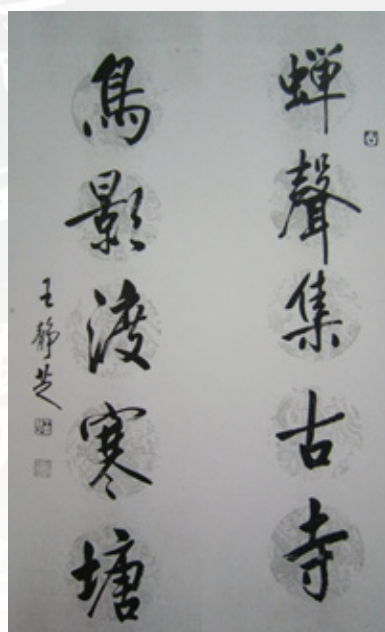 蝉聲集古寺
鳥影渡寒塘
王静芝